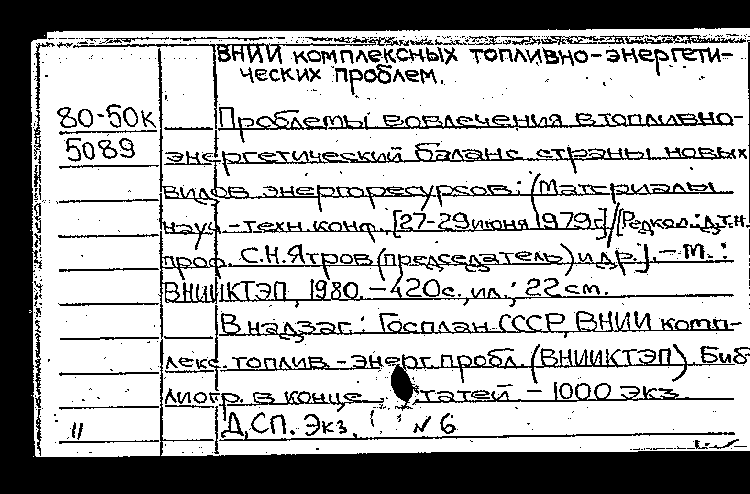 ВНИИ комплексных топливно-энергети-
ческих проблем.
80-50к
5089
Проблемы вовлечения в топливно-
энергетический баланс страны новых
видов энергоресурсов: (Материалы
науч.-техн. конф., [27-29 июня 1979 г.]/[Редкол.: д.т.н.
проф. С.Н. Ятров (председатель) и др.]. - М. :
ВНИИКТЭП, 1980. - 420 с., ил.; 22 см.
В надзаг.: Госплан СССР, ВНИИ комп-
лекс. топлив.-энерг. пробл. (ВНИИКТЭП). Биб-
лиогр. в конце статей - 1000 экз.
Д.СП. Экз. N 6
11